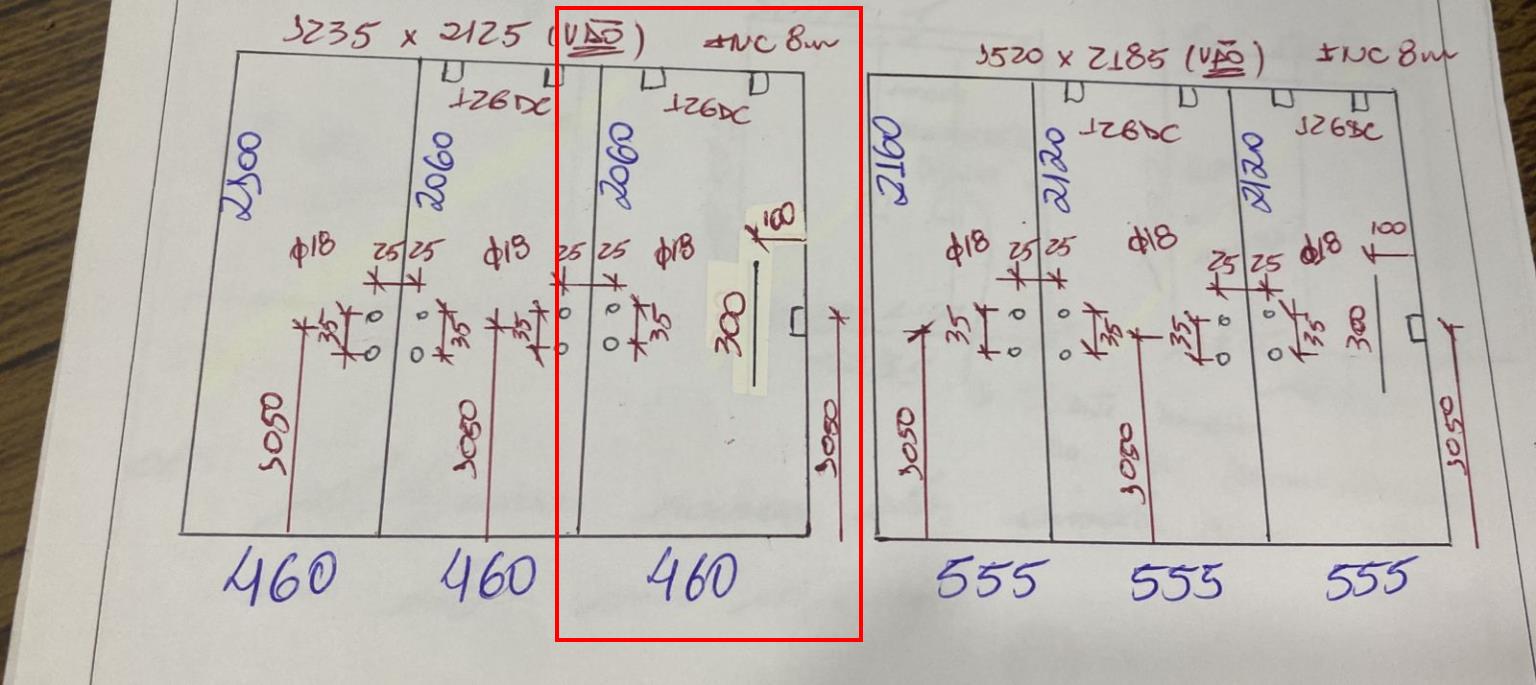 1235 x 2125 (VÃO) INC 8m
1520 x 2185 (VÃO) INC 8m
2100
2060
2060
2160
2120
2120
Φ18
25
25
Φ18
25
25
Φ18
100
35
35
35
35
300
1050
1050
1050
460
460
460
Φ18
25
25
Φ18
25
25
Φ18
100
35
35
35
35
300
1050
1050
1050
555
555
555